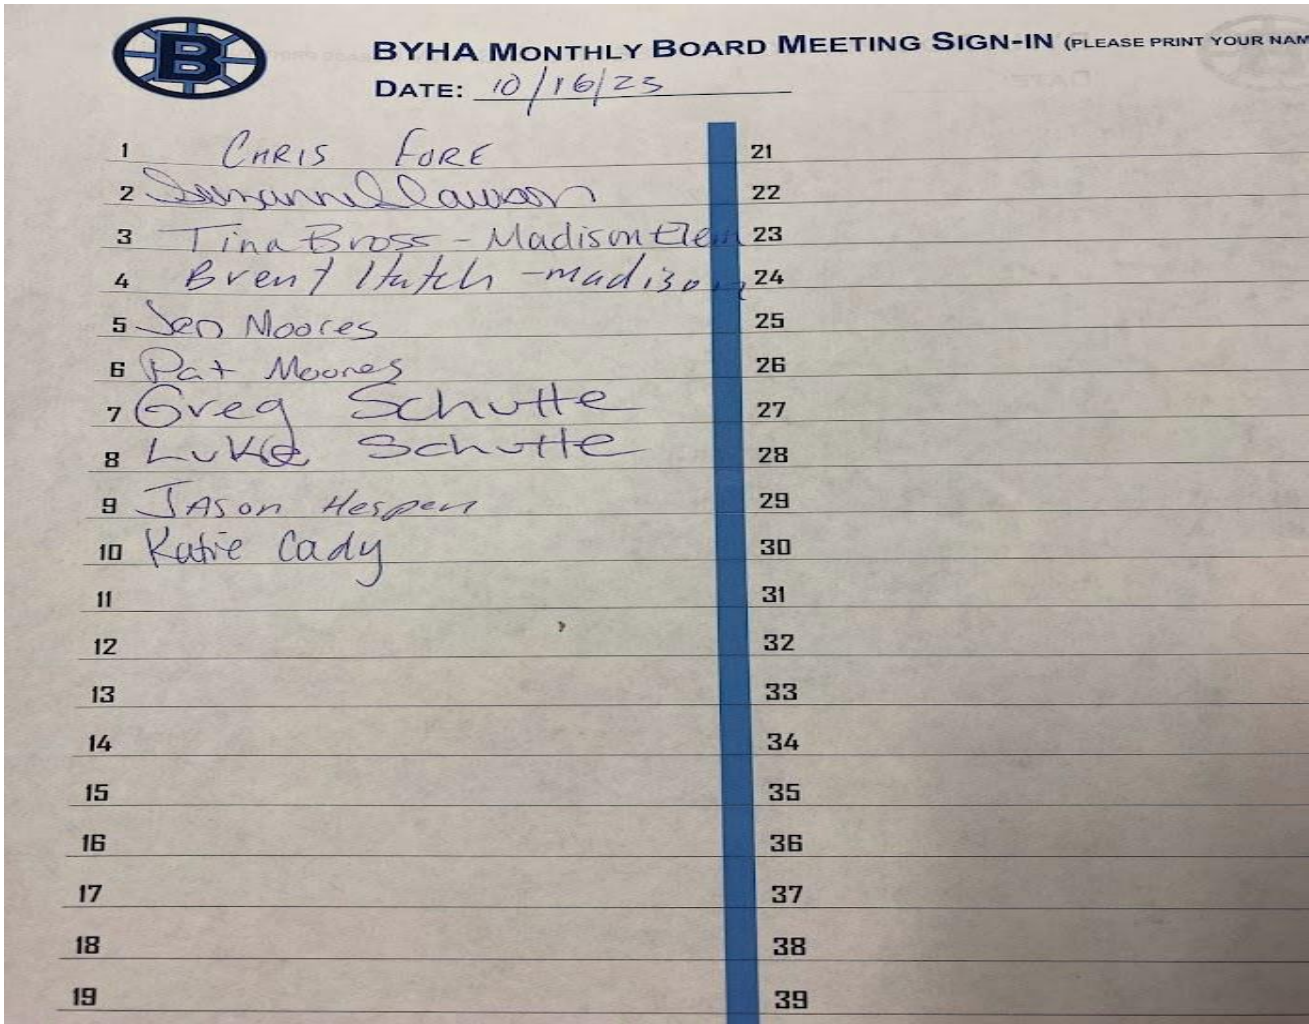 B
BYHA MONTHLY BOARD MEETING SIGN-IN (PLEASE PRINT YOUR NAM
DATE: 10/16/23
1 CHRIS FORE
2 Suzanne Clawson
3 Tina Bross - Madison Elem
4 Brent Hatch - madison
5 Jen Moores
6 Pat Moores
7 Greg Schutte
8 Luke Schutte
9 JASON Hespen
10 Katie Cady
11
12
13
14
15
16
17
18
19
21
22
23
24
25
26
27
28
29
30
31
32
33
34
35
36
37
38
39